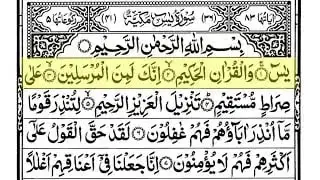 اٰيَاتُهَا ٨٣ (٣٦) سُوْرَةُ يٰسٓ مَكِّيَّةٌ (٤١) رُكُوْعَاتُهَا ٥
بِسْمِ اللّٰهِ الرَّحْمٰنِ الرَّحِيْمِ
يٰسٓ ۚ﴿١﴾ وَالْقُرْاٰنِ الْحَكِيْمِ ۙ﴿٢﴾ اِنَّكَ لَمِنَ الْمُرْسَلِيْنَ ۙ﴿٣﴾ عَلٰى
صِرَاطٍ مُّسْتَقِيْمٍ ؕ﴿٤﴾ تَنْزِيْلَ الْعَزِيْزِ الرَّحِيْمِ ۙ﴿٥﴾ لِتُنْذِرَ قَوْمًا
مَّاۤ اُنْذِرَ اٰبَآؤُهُمْ فَهُمْ غٰفِلُوْنَ ﴿٦﴾ لَقَدْ حَقَّ الْقَوْلُ عَلٰٓى
اَكْثَرِهِمْ فَهُمْ لَا يُؤْمِنُوْنَ ﴿٧﴾ اِنَّا جَعَلْنَا فِيْۤ اَعْنَاقِهِمْ اَغْلٰلًا